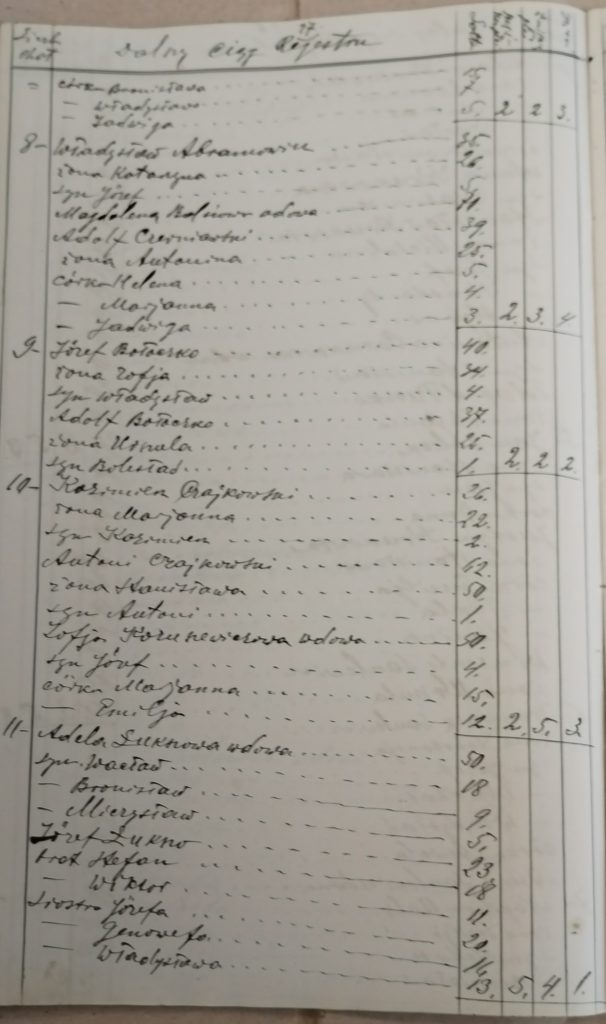 17
Dalszy ciąg Rejestru
Liczb chat
= córka Bronisława 7.
— Władysława
— Jadwiga 5. 2 2 3.
8 – Władysław Abramowicz 35.
żona Katarzyna 26.
syn Józef 5.
Magdalena wdowa 70.
Adolf Czerniawski 39.
żona Antonina 25.
córka Helena 5.
— Marjanna 4.
— Jadwiga 3. 2. 3. 4
9 – Józef Bołoczko 40.
żona Zofja 34.
syn Władysław 4.
Adolf Bołoczko 37.
żona Urszula 25.
syn Bolesław 1. 2. 2 2.
10 – Kazimierz Czajkowski 26.
żona Marjanna 22.
syn Kazimierz 2.
Antoni Czajkowski 62.
żona Stanisława 50.
syn Antoni 1.
Zofja wdowa 50.
syn Józef 4.
córka Marjanna 15.
— Emilja 12. 2. 5. 3
11 – Adela Łuknowa wdowa 50.
syn Wacław 18
— Bronisław 9.
— Mieczysław 5.
Józef Łukno 23
brat Stefan 18
— Wiktor 11.
Siostra Józefa 20.
— Genowefa 16.
— Władysława 13. 5. 4. 1.